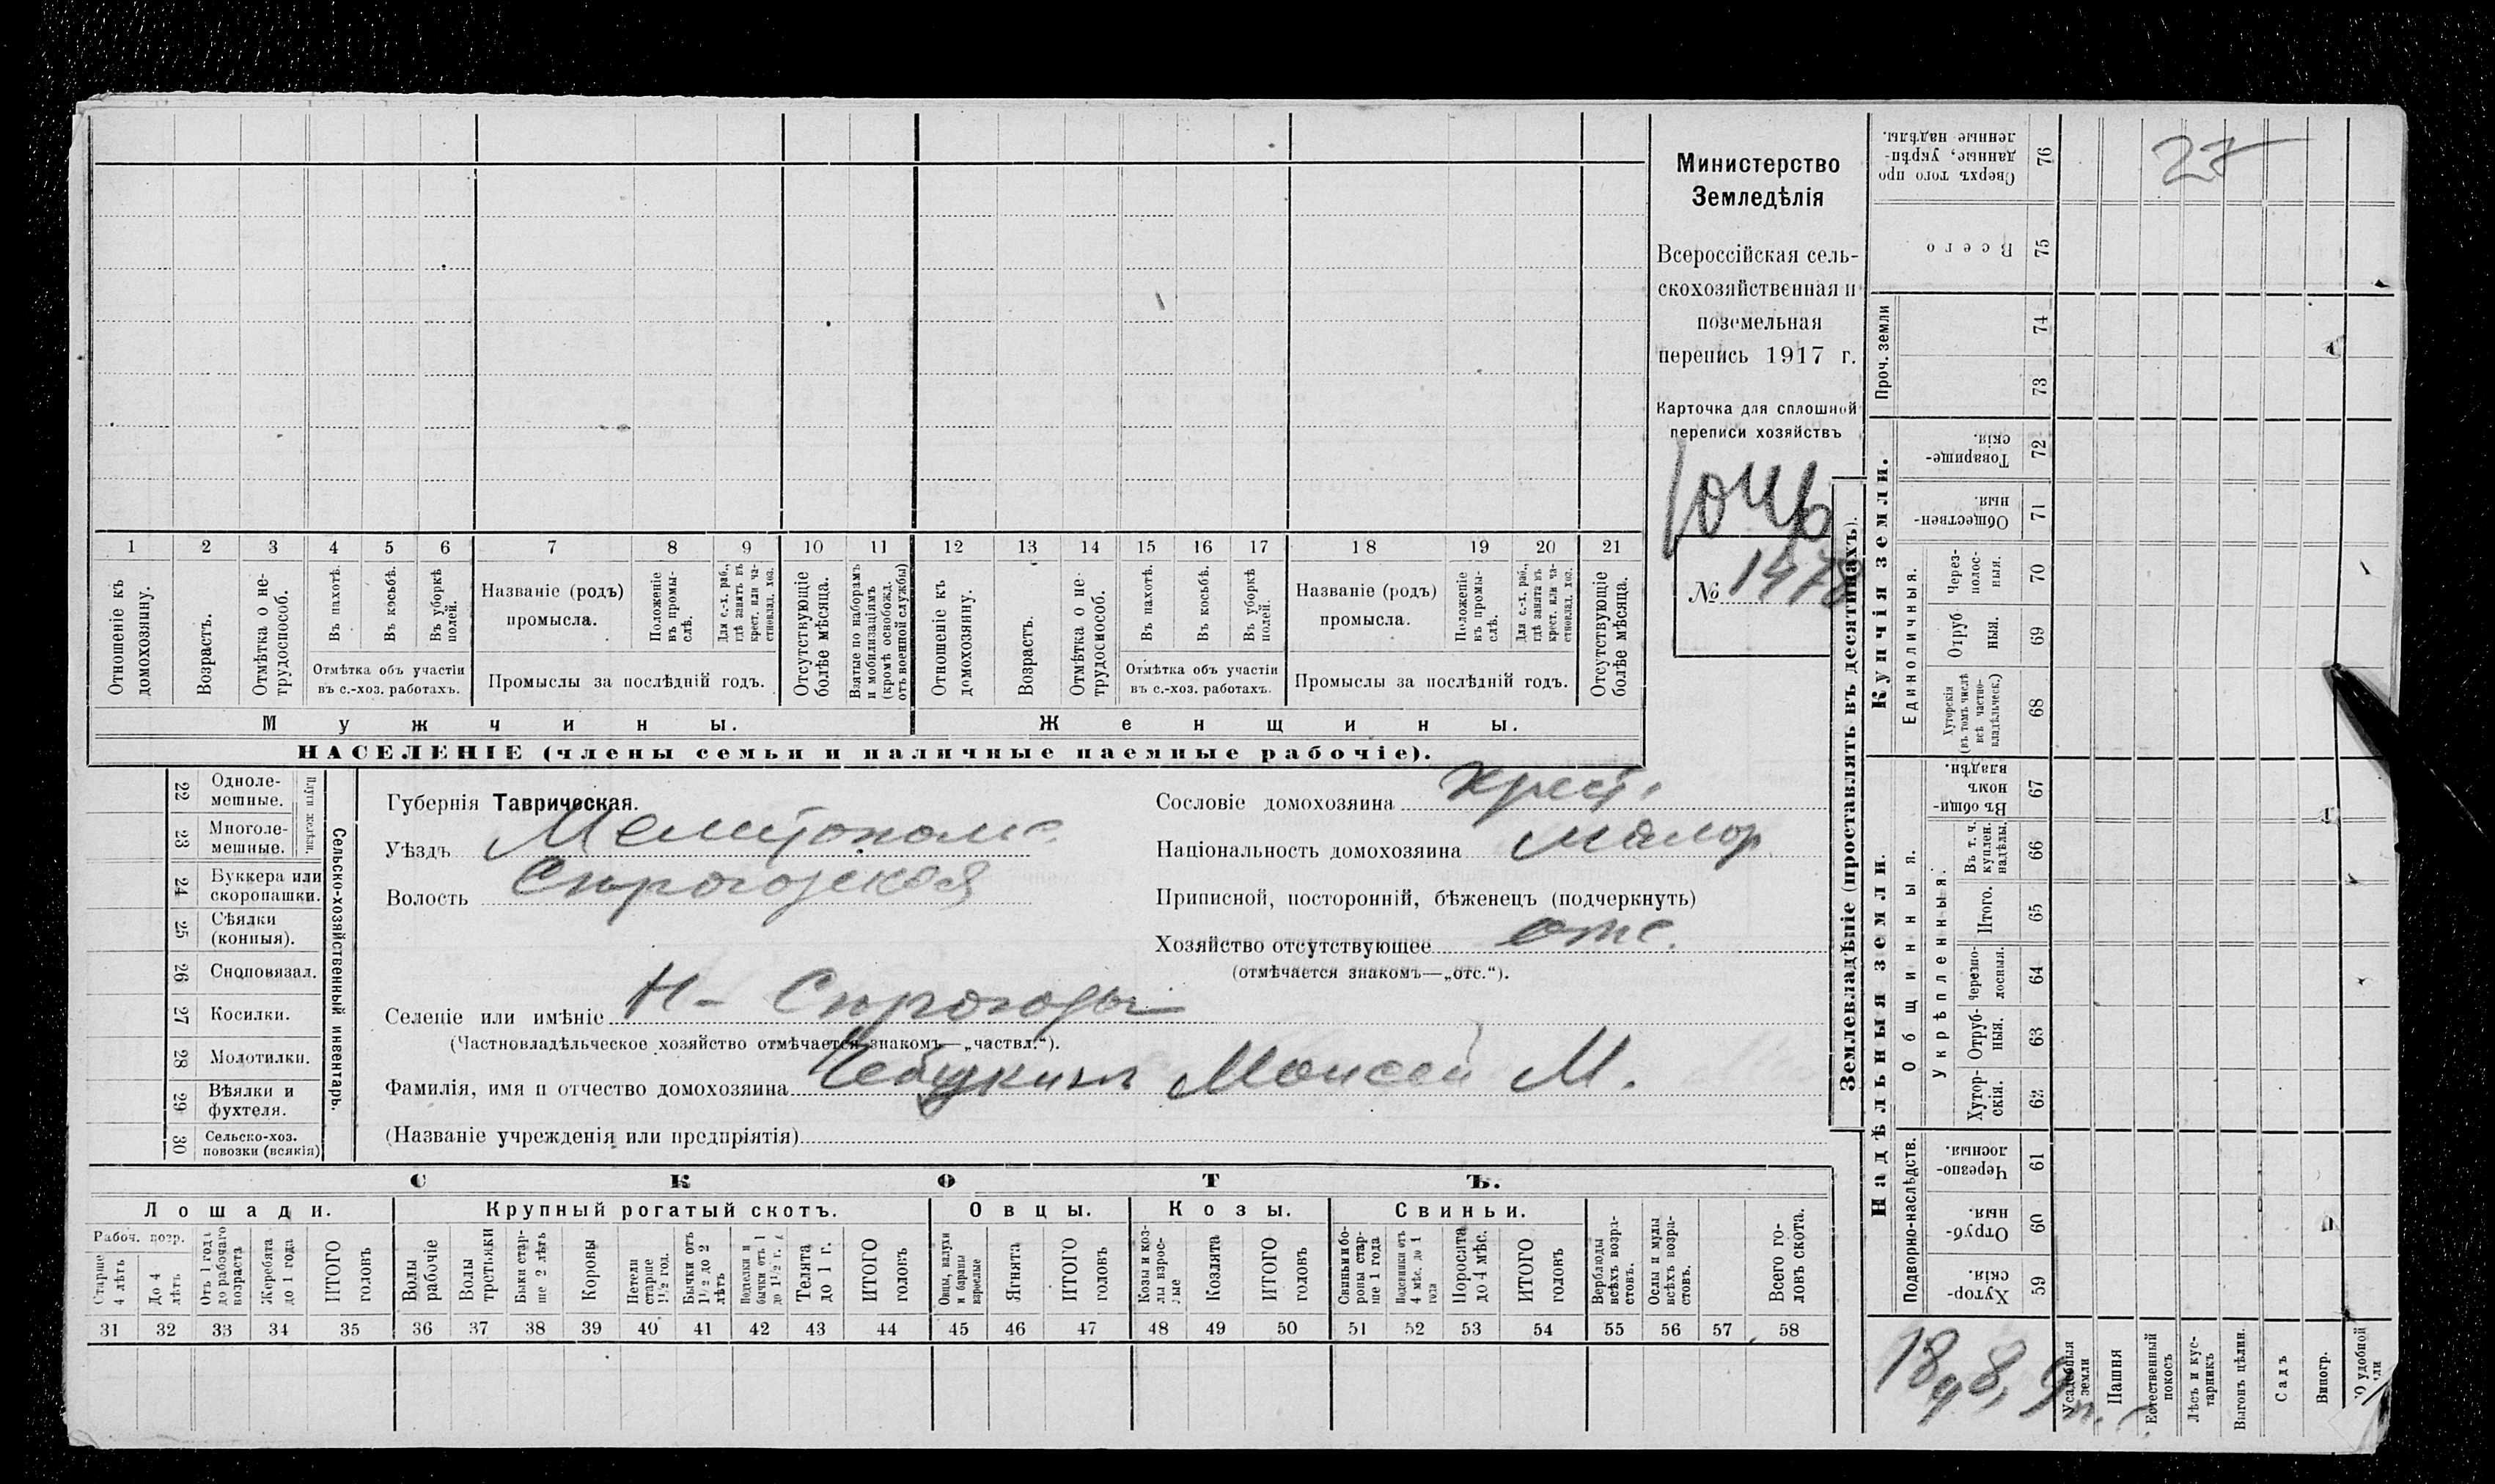 1 2 3 4 5 6 7 8 9 10 11 12 13 14 15 16 17 18 19 20 21
Отношеніе къ домохозяину.
Возрастъ.
Отмѣтка о не-трудоспособ.
Въ пахотѣ.
Въ косьбѣ.
Въ уборкѣ полей.
Отмѣтка объ участіи
въ с.-хоз. работахъ.
Названіе (родъ)
промысла.
Положеніе въ промы-слѣ.
Для с.-х. раб., гдѣ занятъ въ крест. или ча-стновлад. хоз.
Промыслы за послѣдній годъ.
Отсутствующіе болѣе мѣсяца.
Взятые по наборамъ и мобилизаціямъ (кромѣ освобожд. отъ военной службы)
Отношеніе къ домохозяину.
Возрастъ.
Отмѣтка о не-трудоспособ.
Въ пахотѣ.
Въ косьбѣ.
Въ уборкѣ полей.
Отмѣтка объ участіи
въ с.-хоз. работахъ.
Названіе (родъ)
промысла.
Положеніе въ промы-слѣ.
Для с.-х. раб., гдѣ занятъ въ крест. или ча-стновлад. хоз.
Промыслы за послѣдній годъ.
Отсутствующіе болѣе мѣсяца.
Мужчины.
Женщины.
НАСЕЛЕНІЕ (члены семьи и наличные наемные рабочіе).
Министерство
Земледѣлія
Всероссійская сель-
скохозяйственная и
поземельная
перепись 1917 г.
Карточка для сплошной
переписи хозяйствъ
№ 1478
22 Одноле-мешные.
23 Многоле-мешные.
Плуги желѣзн.
24 Буккера или скоропашки.
25 Сѣялки (конныя).
26 Сноповязал.
27 Косилки.
28 Молотилки.
29 Вѣялки и фухтеля.
30 Сельско-хоз. повозки (всякія)
Сельско-хозяйственный инвентарь.
Губернія Таврическая.
Уѣздъ Мелитопол
Волость Сѣрогозская
Сословіе домохозяина крест.
Національность домохозяина малор.
Приписной, посторонній, бѣженецъ (подчеркнуть)
Хозяйство отсутствующее отс.
(отмѣчается знакомъ—„отс.“).
Селеніе или имѣніе Н- Сѣрогозы
(Частновладѣльческое хозяйство отмѣчается знакомъ—„частвл.“).
Фамилія, имя и отчество домохозяина Чебукинъ Моисей М.
(Названіе учрежденія или предпріятія)
СКОТЪ.
Лошади. Крупный рогатый скотъ. Овцы. Козы. Свиньи.
Рабоч. возр.
Старше 4 лѣтъ
До 4 лѣтъ
Отъ 1 года до рабочаго возраста
Жеребята до 1 года
ИТОГО головъ
Волы рабочіе
Волы третьяки
Быки стар-ше 2 лѣтъ
Коровы
Нетели старше 1½ год.
Бычки отъ 1½ до 2 лѣтъ
Телята до 1 г.
ИТОГО головъ
Овцы, валухи и бараны взрослые
Ягнята
ИТОГО головъ
Козы и коз-лы взрос-лые
Козлята
ИТОГО головъ
Свиньи и бо-ровы стар-ше 1 года
Подсвинки отъ 4 мѣс. до 1 года
Поросята до 4 мѣс.
ИТОГО головъ
Верблюды всѣхъ возра-стовъ.
Ослы и мулы всѣхъ возра-стовъ.
Всего го-ловъ скота.
31 32 33 34 35 36 37 38 39 40 41 42 43 44 45 46 47 48 49 50 51 52 53 54 55 56 57 58
Землевладѣніе (проставлять въ десятинахъ).
Купчія земли.
Надѣльныя земли.
Сверхъ того про-данные, укрѣп-ленные надѣлы. 76
27
Всего 75
Проч. земли 74
73
Товарище-скія. 72
Обществен-ныя. 71
Единоличныя.
Через-полос-ныя. 70
Отруб-ныя. 69
Хуторскія (въ томъ числѣ всѣ частно-владѣльческ.) 68
Общинныя.
Въ общи-номъ владѣн. 67
Укрѣпленныя.
Въ т. ч. куплен. надѣлы. 66
Итого. 65
Черезпо-лосныя. 64
Отруб-ныя. 63
Хутор-скія. 62
Подворно-наслѣдств.
Черезпо-лосныя. 61
Отруб-ныя. 60
Хутор-скія. 59
Усадебныя земли
Пашня
Естественный покосъ
Лѣсъ и кус-тарникъ
Выгонъ цѣлин.
Садъ
Виногр.